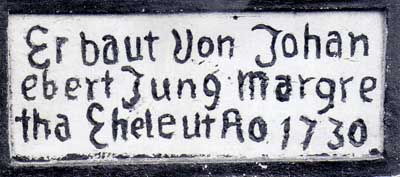 Er baut Von Johan
ebert Jung Margre
tha Eheleut Ao 1730